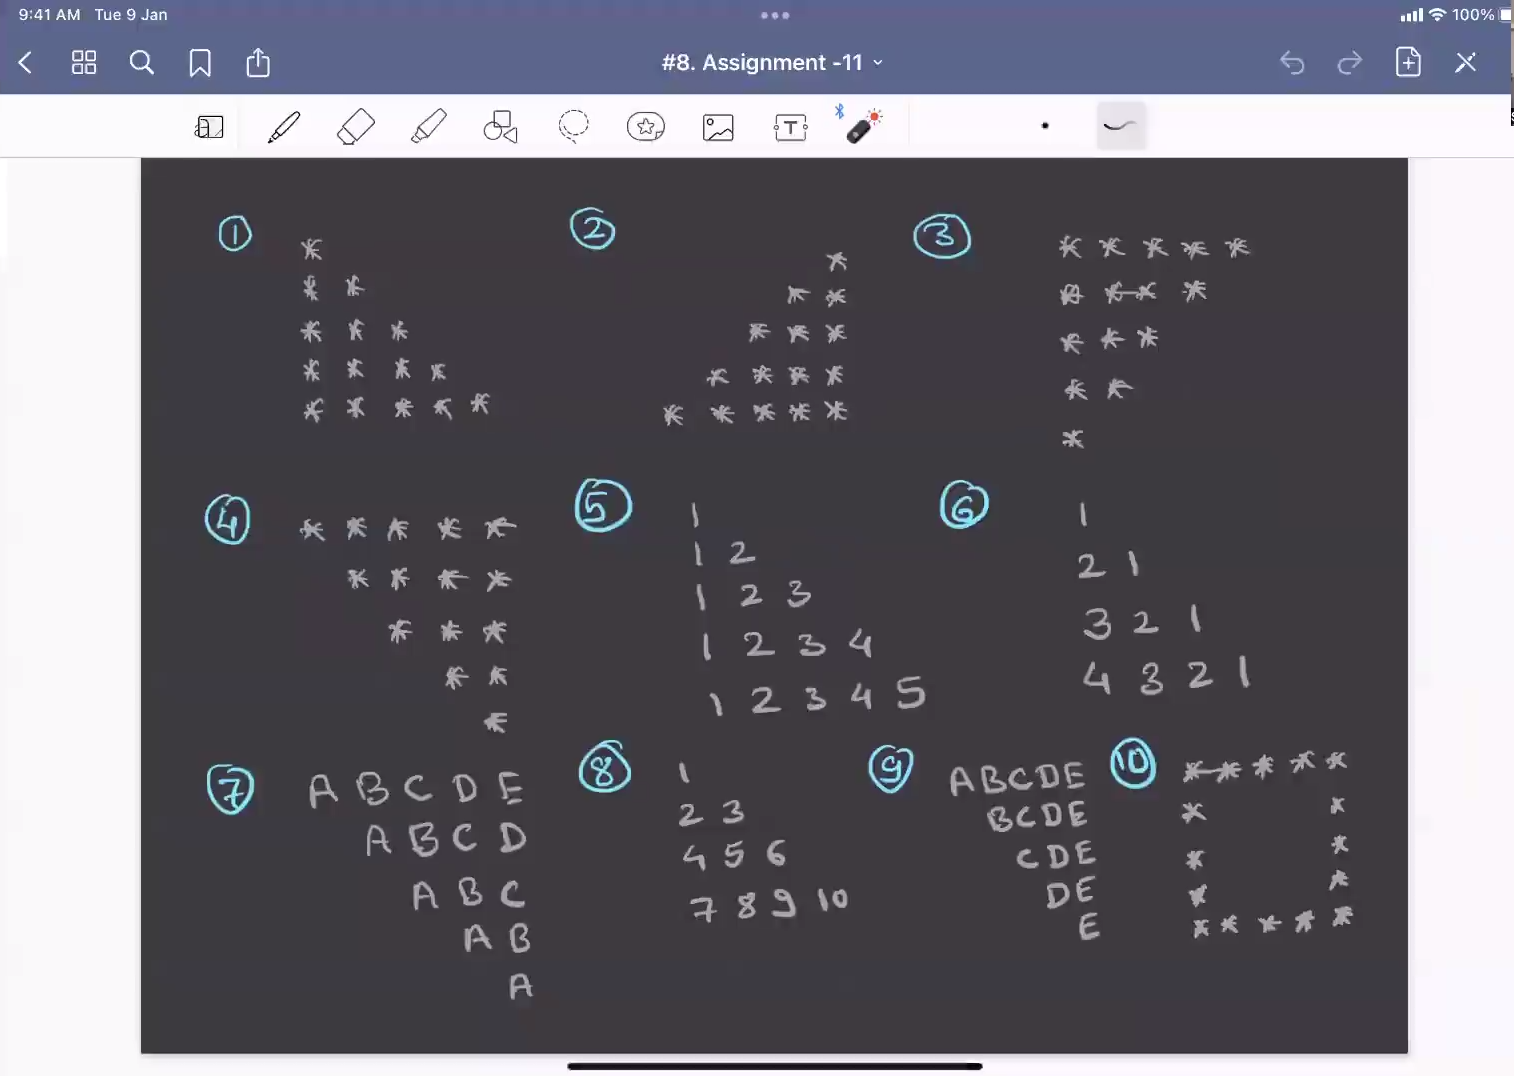 9:41 AM Tue 9 Jan
100%
#8. Assignment -11
T
1
*
* *
* * *
* * * *
* * * * *
2
*
* *
* * *
* * * *
* * * * *
3
* * * * *
* * * *
* * *
* *
*
4
* * * * *
* * * *
* * *
* *
*
5
1
1 2
1 2 3
1 2 3 4
1 2 3 4 5
6
1
2 1
3 2 1
4 3 2 1
7
A B C D E
A B C D
A B C
A B
A
8
1
2 3
4 5 6
7 8 9 10
9
ABCDE
BCDE
CDE
DE
E
10
* * * * *
* *
* *
* *
* * * * *